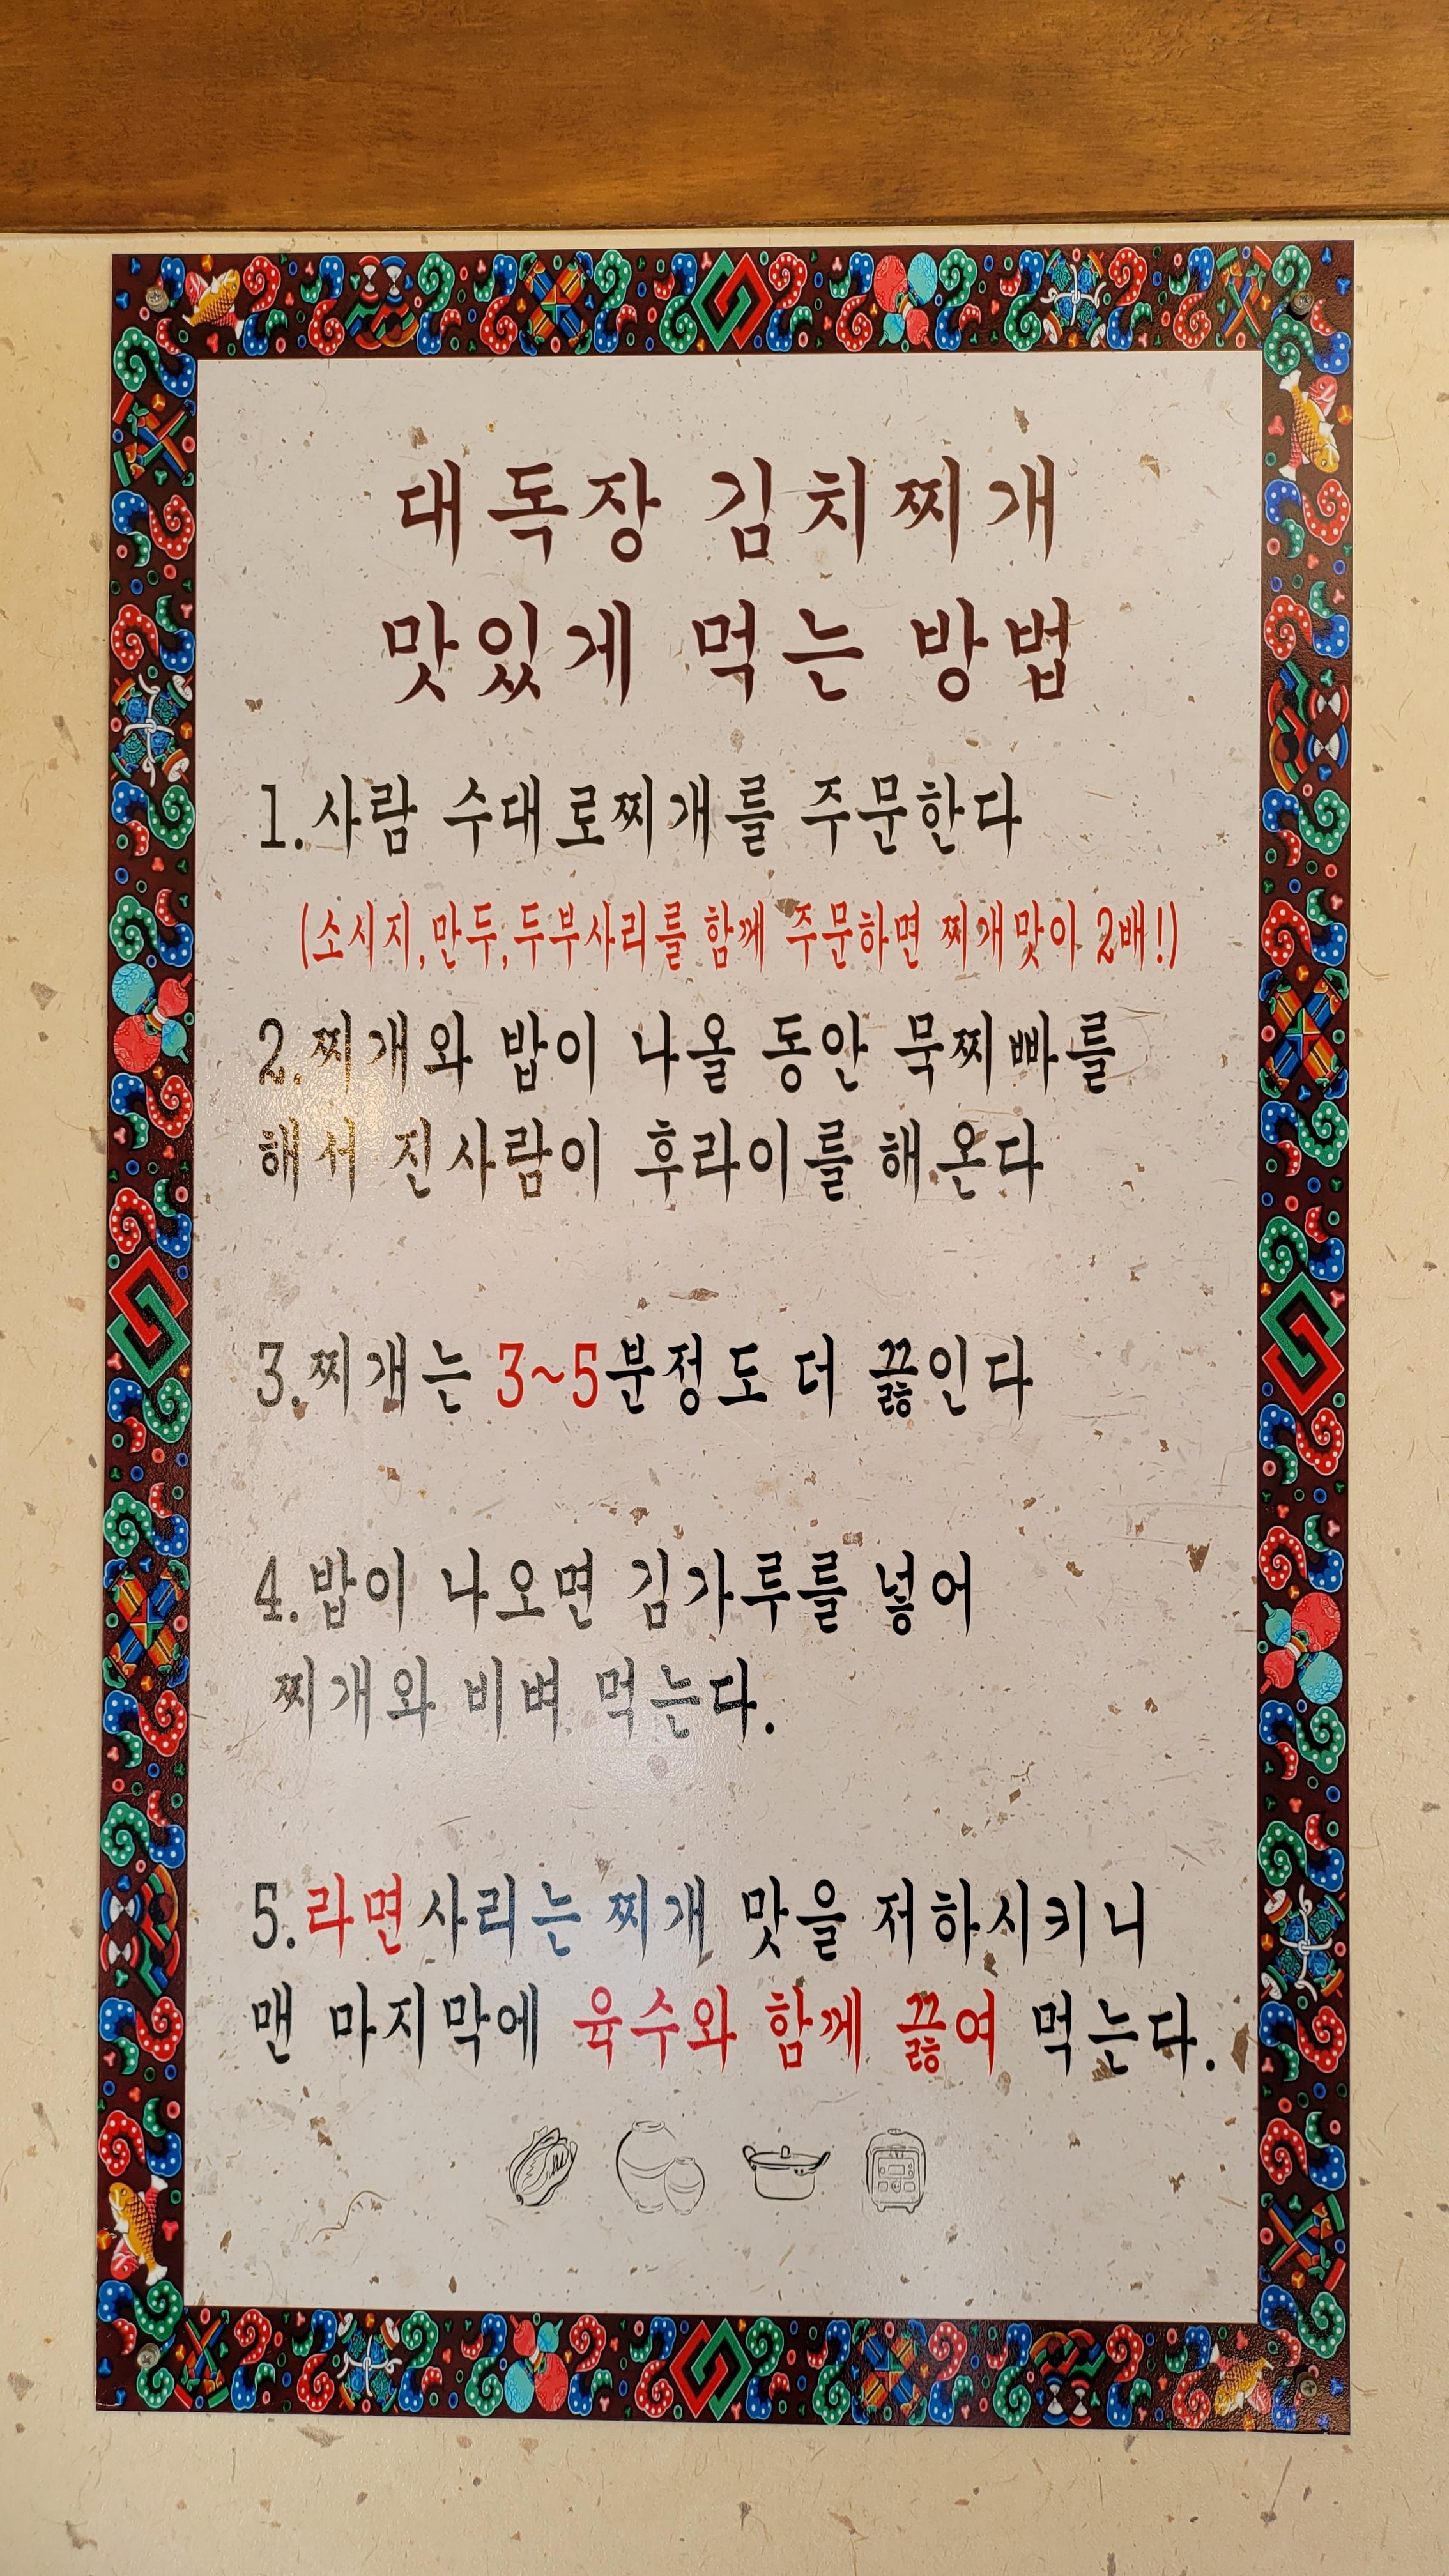 대독장 김치찌개
맛있게 먹는 방법
1.사람 수대로찌개를 주문한다
(소시지,만두,두부사리를 함께 주문하면 찌개맛이 2배!)
2.찌개와 밥이 나올 동안 묵찌빠를
해서 진사람이 후라이를 해온다
3.찌개는 3~5분정도 더 끓인다
4.밥이 나오면 김가루를 넣어
찌개와 비벼 먹는다.
5.라면사리는 찌개 맛을 저하시키니
맨 마지막에 육수와 함께 끓여 먹는다.